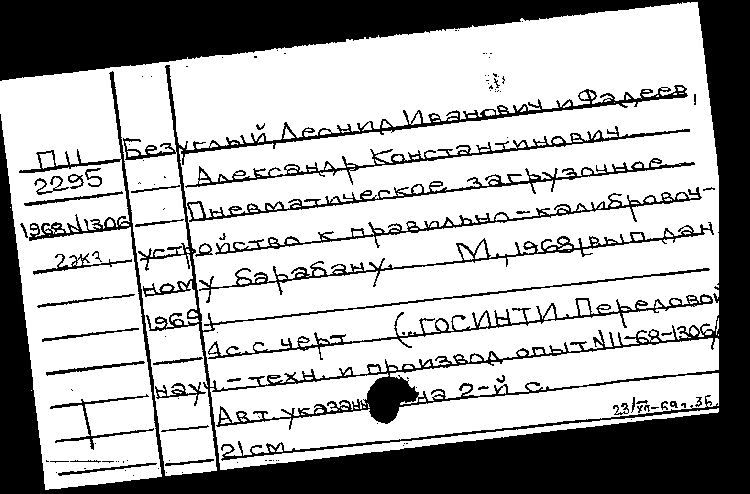 Безуглый, Леонид Иванович и Фадеев,
П11
Александр Константинович
2295
Пневматическое загрузочное
1968 N1306
устройство к правильно-калибровоч-
2 экз.
ному барабану. М., 1968, [вып дан
1969]
4 с. с черт (... ГОСИНТИ. Передовой
науч.-техн. и производ. опыт. N11-68-1306/
Авт указаны на 2-й с.
23/VII-69г. 35.
21 см.